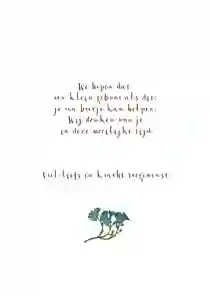 We hopen dat
een klein gebaar als dit
je een beetje kan helpen.
Wij denken aan je
in deze moeilijke tijd.
Veel liefs en knuffel toegewenst